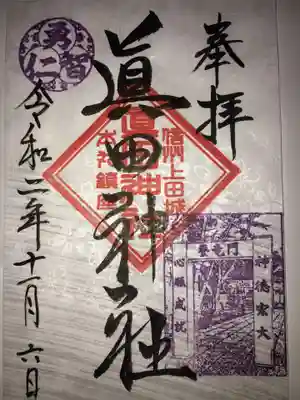 奉拝
眞田神社
信州上田城
眞田神社
本丸鎮座
智
勇
仁
神徳宏大
心願成就
令和二年十一月六日